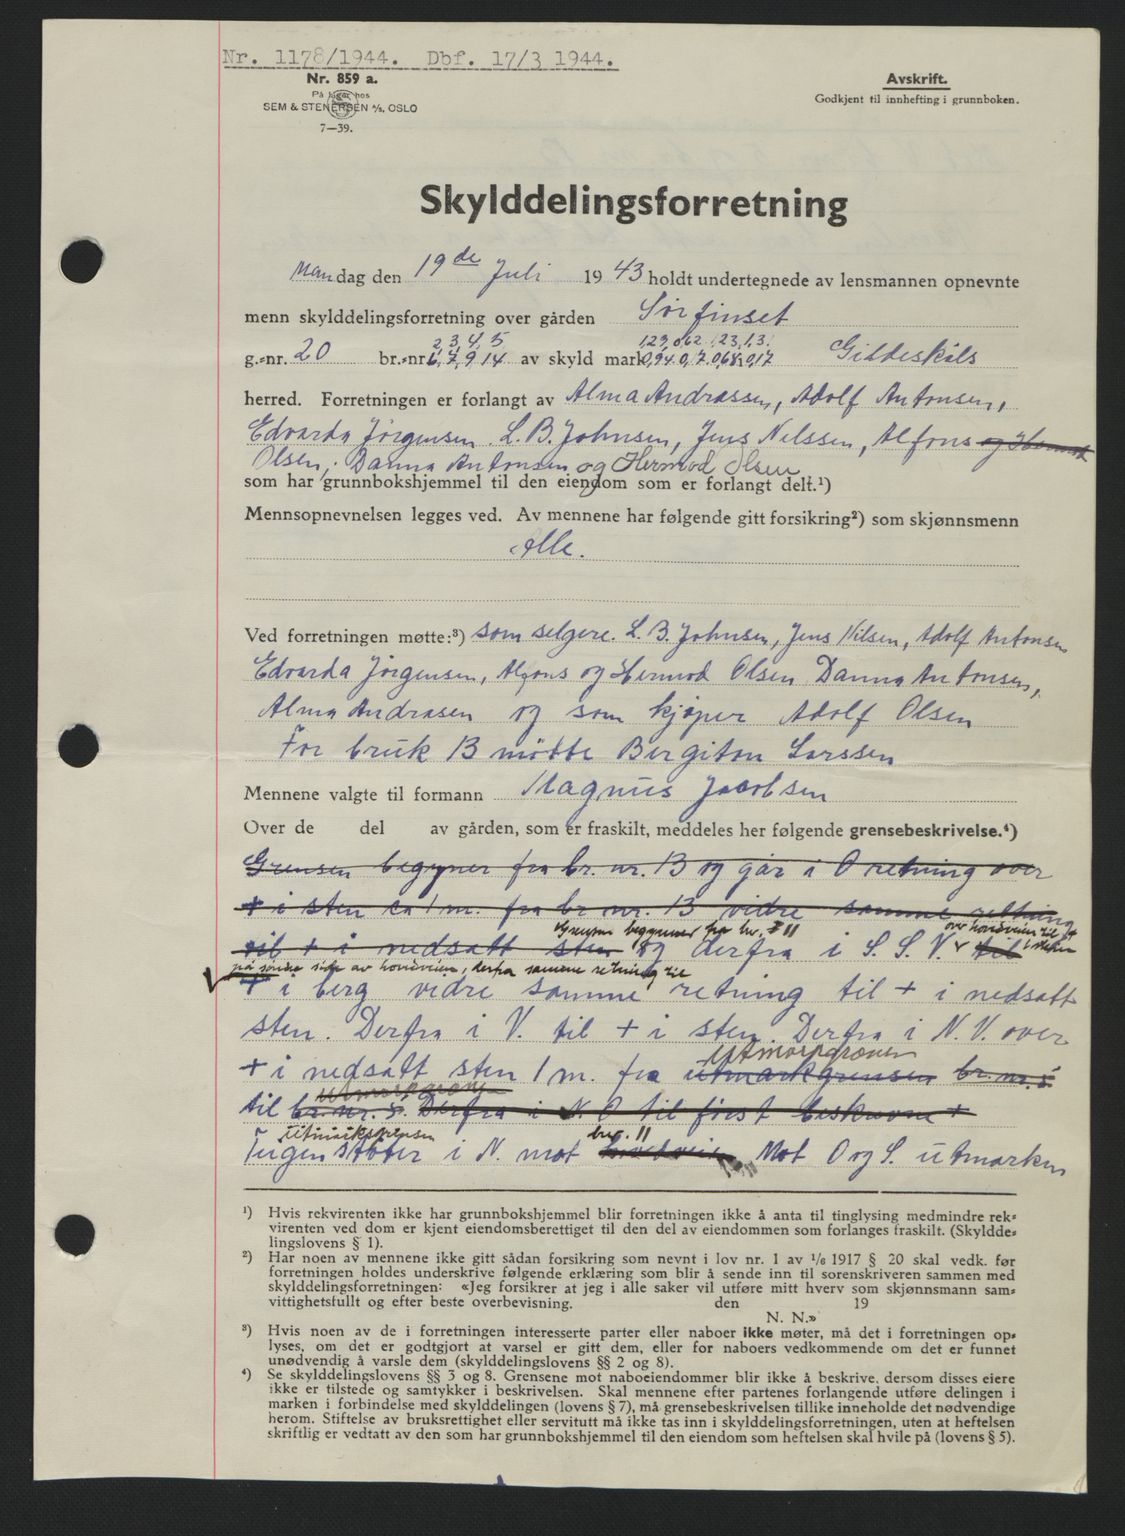 Nr. 1178/1944. Dbf. 17/3 1944.
Nr. 859 a.
På lager hos
SEM & STENERSEN A/S, OSLO
7—39.
Avskrift.
Godkjent til innhefting i grunnboken.
Skylddelingsforretning
Mandag den 19de Juli 1943 holdt undertegnede av lensmannen opnevnte
menn skylddelingsforretning over gården Sörfinset
2, 3, 4, 5 1,23, 0,62 1,23, 1,3.
g.-nr. 20 br.-nr. 6, 7, 9 14 av skyld mark 0,94 0,7 0,68 0,17 Gildeskåls
herred. Forretningen er forlangt av Alma Andrassen, Adolf Antonsen,
Edvarda Jörgensen L. B. Johnsen, Jens Nilssen, Alfons og Hermod
Olsen, Danna Antonsen og Hermod Olsen
som har grunnbokshjemmel til den eiendom som er forlangt delt.¹)
Mennsopnevnelsen legges ved. Av mennene har følgende gitt forsikring²) som skjønnsmenn
Alle.
Ved forretningen møtte:³) som selgere. L. B. Johnsen, Jens Nilsen, Adolf Antonsen
Edvarda Jörgensen, Alfons og Hermod Olsen Danna Antonsen,
Alma Andrasen og som kjöper Adolf Olsen
For bruk 13 mötte Bergiton Larssen
Mennene valgte til formann Magnus Jacobsen
Over de del av gården, som er fraskilt, meddeles her følgende grensebeskrivelse.⁴)
Grensen begyner fra br. nr. 13 og går i O retning over
+ i sten ca 1 m. fra br. nr. 13 vidre samme retning
Grensen begynner fra br. 11 over hovdveien til + i stein
til + i nedsatt sten og derfra i S. S. V. til
på søndre side av hovdveien, derfra samme retning til
+ i berg vidre samme retning til + i nedsatt
sten. Derfra i V. til + i sten Derfra i N. V. over
+ i nedsatt sten 1 m. fra utmarkgrensen br. nr. 5
til br. nr. 5. Derfra i N. O til först beskrevne +
utmarksgrensen br. 11
Tugen stöter i N. mot Mot O og S. utmarken
¹) Hvis rekvirenten ikke har grunnbokshjemmel blir forretningen ikke å anta til tinglysing medmindre rek-
virenten ved dom er kjent eiendomsberettiget til den del av eiendommen som forlanges fraskilt. (Skyldde-
lingslovens § 1).
²) Har noen av mennene ikke gitt sådan forsikring som nevnt i lov nr. 1 av 1/6 1917 § 20 skal vedk. før
forretningen holdes underskrive følgende erklæring som blir å sende inn til sorenskriveren sammen med
skylddelingsforretningen: «Jeg forsikrer at jeg i alle saker vil utføre mitt hverv som skjønnsmann sam-
vittighetsfullt og efter beste overbevisning. den 19
N. N.»
³) Hvis noen av de i forretningen interesserte parter eller naboer ikke møter, må det i forretningen op-
lyses, om det er godtgjort at varsel er gitt dem, eller for naboers vedkommende om det er funnet
unødvendig å varsle dem (skylddelingslovens §§ 2 og 8).
⁴) Se skylddelingslovens §§ 3 og 8. Grensene mot naboeiendommer blir ikke å beskrive, dersom disses eiere
ikke er tilstede og samtykker i beskrivelsen. Skal mennene efter partenes forlangende utføre delingen i
marken i forbindelse med skylddelingen (lovens § 7), må grensebeskrivelsen tillike inneholde det nødvendige
herom. Stiftelse av bruksrettighet eller servitutt må ikke tas inn i skylddelingsforretningen, uten at heftelsen
skriftlig er vedtatt av den som har grunnbokshjemmel til den eiendom som heftelsen skal hvile på (lovens § 5).